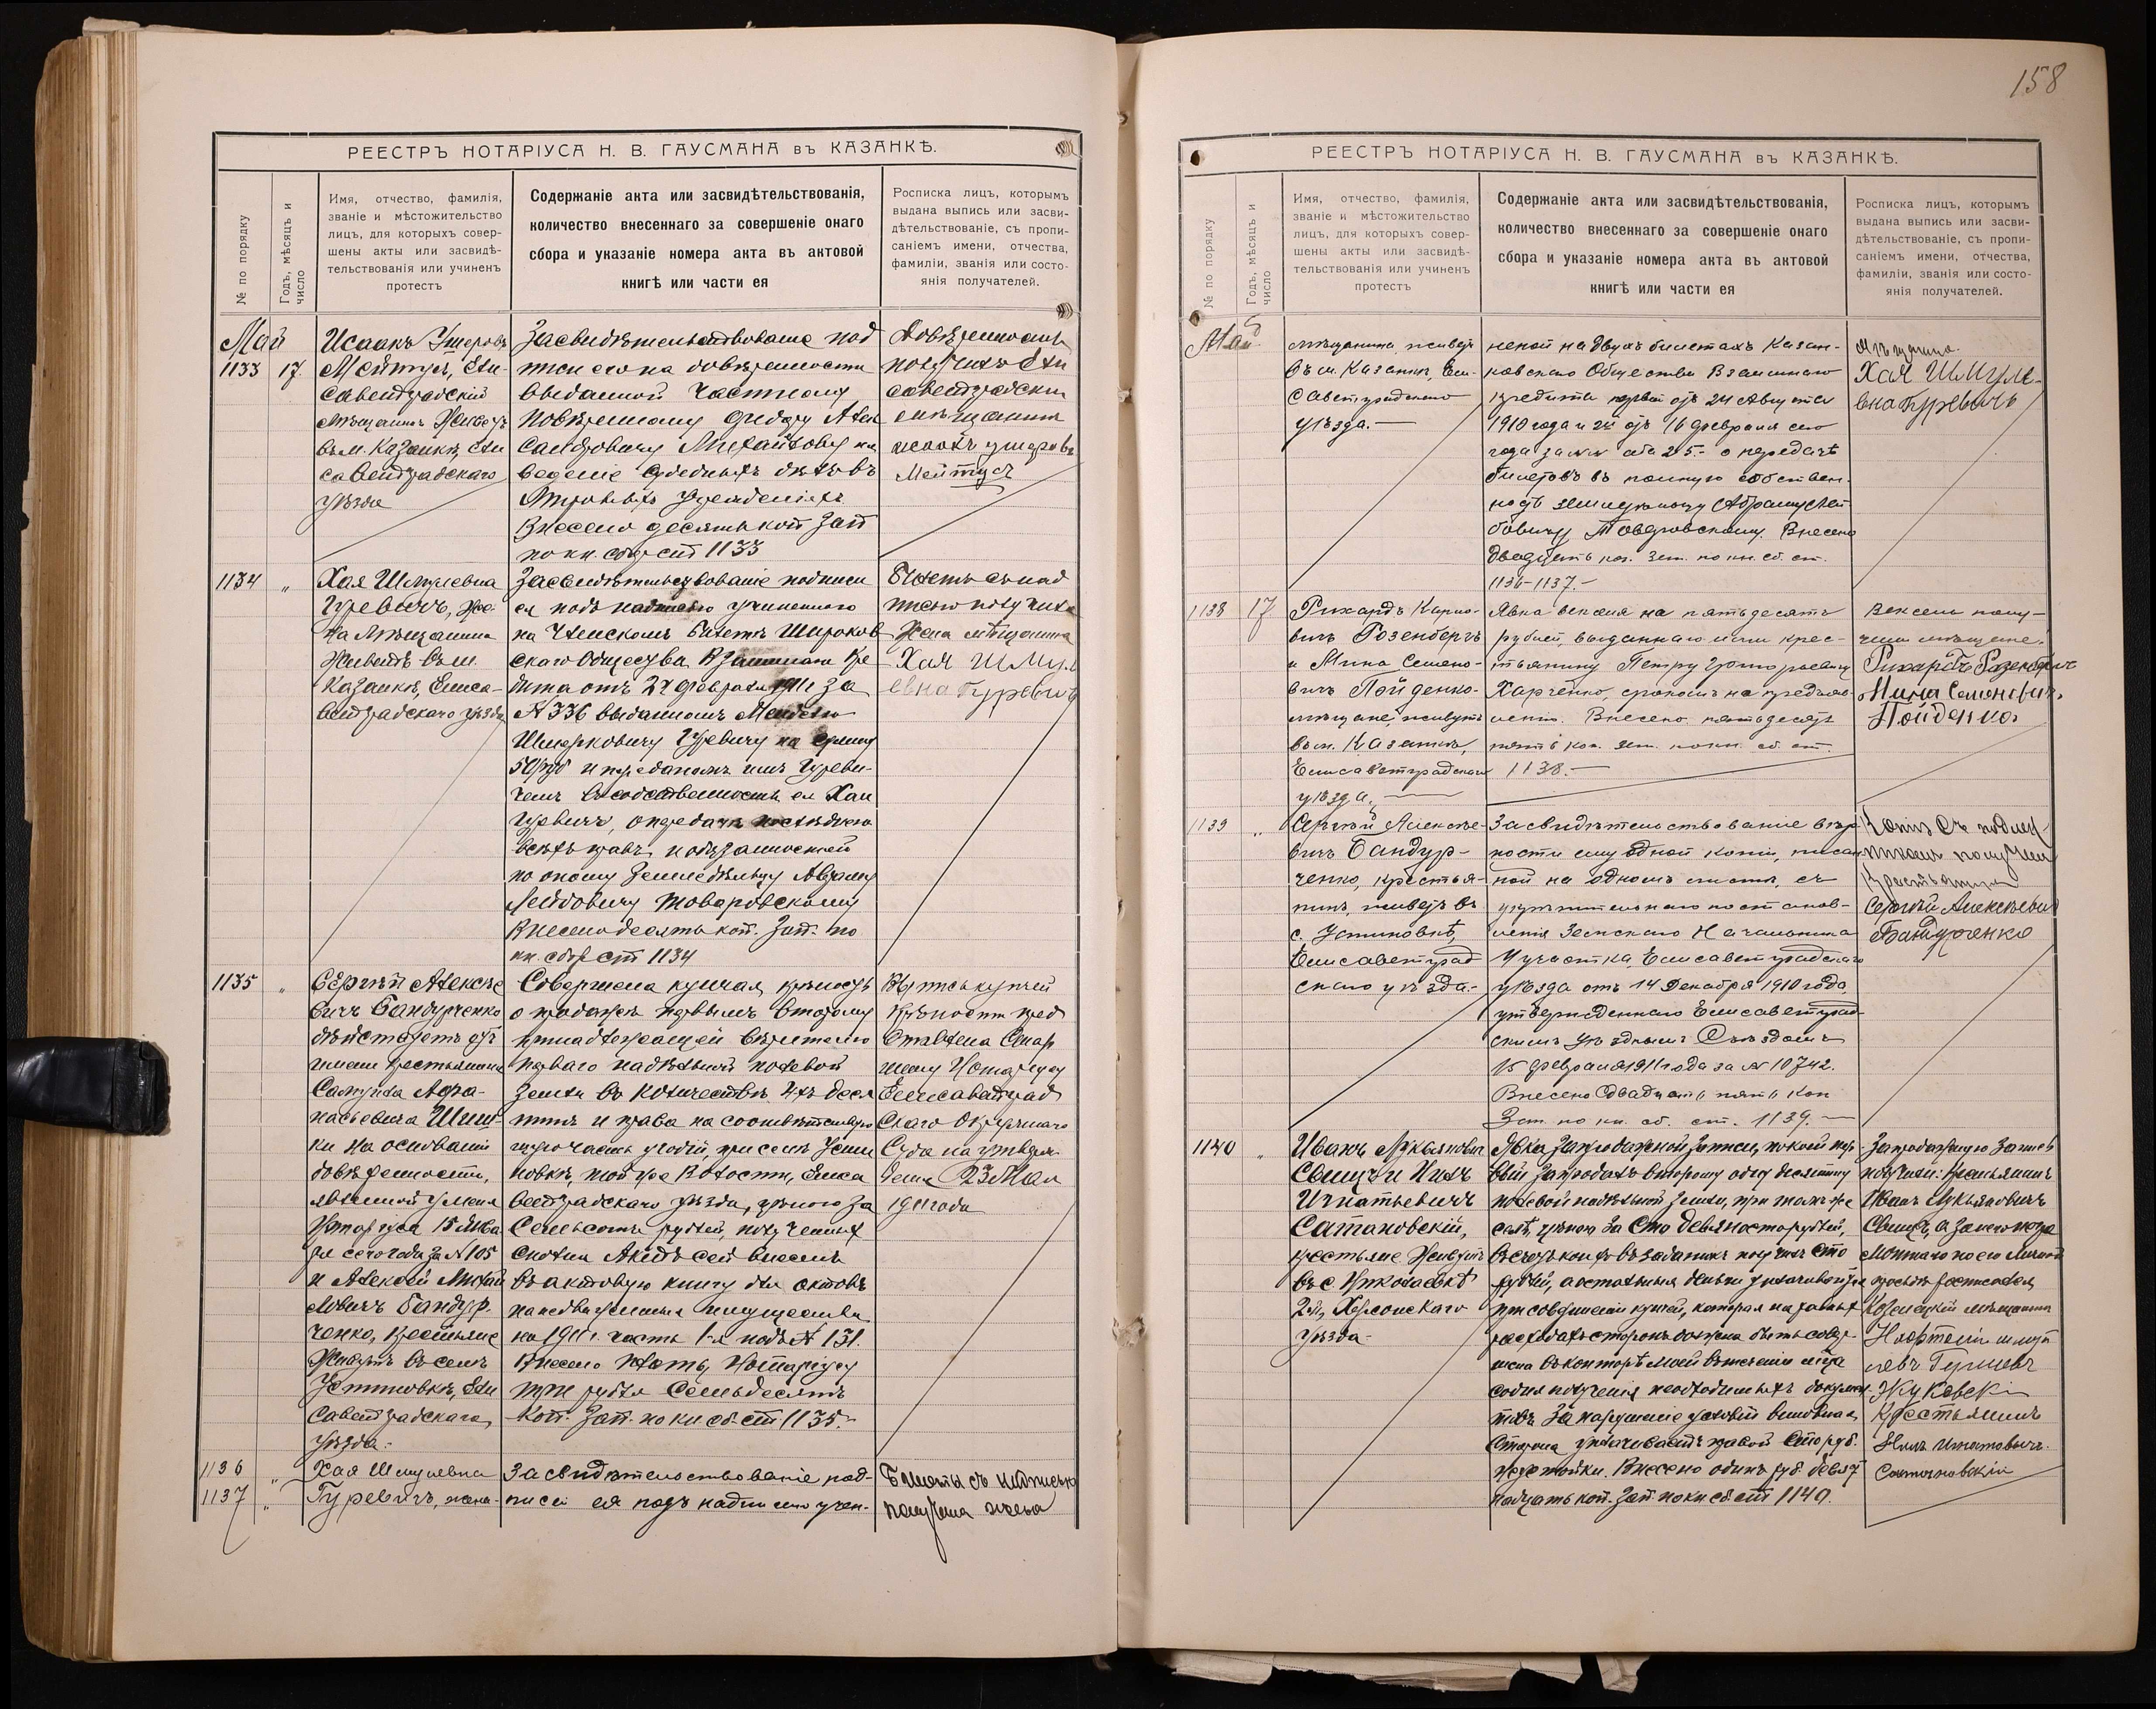 158
РЕЕСТРЪ НОТАРІУСА Н. В. ГАУСМАНА въ КАЗАНКѢ.
№ по порядку
Годъ, мѣсяцъ и
число
Имя, отчество, фамилія,
званіе и мѣстожительство
лицъ, для которыхъ совер-
шены акты или засвидѣ-
тельствованія или учиненъ
протестъ
Содержаніе акта или засвидѣтельствованія,
количество внесеннаго за совершеніе онаго
сбора и указаніе номера акта въ актовой
книгѣ или части ея
Росписка лицъ, которымъ
выдана выпись или засви-
дѣтельствованіе, съ пропи-
саніемъ имени, отчества,
фамиліи, званія или состо-
янія получателей.
Май
1133 17.
Исаакъ Ушеровъ
Мейтусъ, Ели-
саветградскій
мѣщанинъ живетъ
въ м. Казанкѣ, Ели
саветградскаго
уѣзда
Засвидѣтельствованіе под
писи его на довѣренности
выданной Частному
Повѣренному Федору Алек
сандровичу Михайлову на
веденіе судебныхъ дѣлъ въ
Мировыхъ Учрежденіяхъ
Внесено десять коп. Зап
по кн. сбор. ст 1133
Довѣренность
получилъ Ели
саветградскій
мѣщанинъ
Исаакъ Ушеровъ
Мейтусъ
1134 "
Хая Шмулевна
Гуревичъ, же-
на мѣщанина
живетъ въ м.
Казанкѣ, Елиса-
ветградскаго уѣзда
Засвидѣтельствованіе подписи
ея подъ надписью учиненною
на Членскомъ билетѣ Широков
скаго Общества Взаимнаго Кре
дита отъ 24 февраля 1911 г за
№ 336 выданномъ Менделю
Шмерковичу Гуревичу на сумму
50 руб и переданомъ имъ Гуреви-
чемъ въ собственность ея Хаи
Гуревичъ, о передачѣ послѣднею
всѣхъ правъ и обязанностей
по оному землевладѣльцу Абраму
Лейбовичу Товаровскому
Внесено десять коп. Зап. по
кн. сбор ст 1134
Билетъ съ над
писью получила
Жена мѣщанина
Хая Шмул
евна Гуревичъ
1135 "
Сергѣй Алексѣе
вичъ Бандурченко
дѣйствуетъ отъ
имени крестьянина
Самуила Афа-
насьевича Шиш-
ки на основаніи
довѣренности,
явленной у меня
Нотаріуса 15 Янва
ря сего года за № 105
и Алексѣй Михай
ловичъ Бандур-
ченко, крестьяне
живутъ въ селѣ
Устиновкѣ, Ели
саветградскаго
уѣзда.-
Совершена купчая крѣпость
о продажѣ первымъ второму
принадлежащей вѣрителю
перваго надѣльной полевой
земли въ количествѣ 4-хъ деся
тинъ и права на соотвѣтствую
щую часть угодій, при селѣ Усти
новкѣ, той же Волости, Елиса
ветградскаго уѣзда, цѣною за
Семьсотъ рублей, полученныхъ
сполна Актъ сей внесенъ
въ актовую книгу для актовъ
на недвижимыя имущества
на 1911 г. часть 1-я подъ № 131.
Внесено платы Нотаріусу
три рубля Семьдесятъ
Коп. Зап. по кн сб. ст 1135.-
Выпись купчей
крѣпости пред
ставлена Стар
шему Нотаріусу
Елисаветград
скаго Окружнаго
Суда на утверж-
деніе 23 Мая
1911 года
1136 "
1137 "
Хая Шмулевна
Гуревичъ, жена
Засвидѣтельствованіе под-
писи ея подъ надписью учи-
Билеты съ надписью
получила жена
РЕЕСТРЪ НОТАРІУСА Н. В. ГАУСМАНА въ КАЗАНКѢ.
№ по порядку
Годъ, мѣсяцъ и
число
Имя, отчество, фамилія,
званіе и мѣстожительство
лицъ, для которыхъ совер-
шены акты или засвидѣ-
тельствованія или учиненъ
протестъ
Содержаніе акта или засвидѣтельствованія,
количество внесеннаго за совершеніе онаго
сбора и указаніе номера акта въ актовой
книгѣ или части ея
Росписка лицъ, которымъ
выдана выпись или засви-
дѣтельствованіе, съ пропи-
саніемъ имени, отчества,
фамиліи, званія или состо-
янія получателей.
Май
мѣщанина, живетъ
въ м. Казанкѣ, Ели-
саветградскаго
уѣзда.—
неной на двухъ билетахъ Казан-
ковскаго Общества Взаимнаго
Кредита первый отъ 24 Августа
1910 года и 2й отъ 16 февраля сего
года за №№ оба 25.- о передачѣ
билетовъ въ полную собствен-
ность землевладѣльцу Абраму Лей-
бовичу Товаровскому. Внесено
двадцать коп. Зап. по кн. сб. ст.
1136-1137.-
мѣщанина
Хая Шмуле-
вна Гуревичъ
1138 17
Рихардъ Карло-
вичъ Розенбергъ
и Мина Семено-
вичъ Пойденко-
мѣщане, живутъ
въ м. Казанкѣ,
Елисаветградскаго
уѣзда.—
Явка векселя на пятьдесятъ
рублей, выданнаго ими крес-
тьянину Петру Григорьевичу
Харченко, срокомъ на предъяв-
леніи. Внесено пятьдесятъ
пять коп. Зап. по кн. сб. ст.
1138.—
Вексель полу-
чили мѣщане.
Рихардъ Розенбергъ
Мина Семеневичъ
Пойденко
1139 "
Сергѣй Алексѣе-
вичъ Бандур-
ченко, крестья-
нинъ, живетъ въ
с. Устиновкѣ,
Елисаветград
скаго уѣзда.-
Засвидѣтельствованіе вѣр-
ности ему одной копіи, писан-
ной на одномъ листѣ, съ
укрѣпительнаго постанов-
ленія Земскаго Начальника
4 участка, Елисаветградскаго
уѣзда отъ 14 Декабря 1910 года,
утвержденнаго Елисаветград-
скимъ Уѣзднымъ Съѣздомъ
15 февраля 1911 года за № 10742.
Внесено Двадцать пять Коп
Зап. по кн. сб. ст. 1139.—
Копію съ подлин-
никомъ получилъ
Крестьянинъ
Сергѣй Алексѣевичъ
Бандурченко
1140 "
Иванъ Лукьяновичъ
Свищъ и Нилъ
Игнатьевичъ
Сатановскій,
крестьяне живутъ
въ с. Николаевкѣ
2й, Херсонскаго
уѣзда-
Явка Запродажной Записи, по коей пер-
вый запродалъ второму одну десятину
полевой надѣльной земли, при томъ же
селѣ, цѣною за Сто девяносто рублей,
въ счетъ коихъ въ задатокъ получилъ Сто
рублей, а остальныя деньги уплачиваются
при совершеніи купчей, которая на равныхъ
расходахъ сторонъ должна быть совер-
шена въ конторѣ моей въ теченіи мѣсяца
со дня полученія необходимыхъ докумен-
товъ За нарушеніе условій виновная
Сторона уплачиваетъ правой Сто руб.
неустойки. Внесено одинъ руб. девят
надцать коп. Зап. по кн сб ст 1140.
Запродажную Запись
получили: крестьянинъ
Иванъ Лукьяновичъ
Свищъ, а за него негра
мотнаго по его личной
просьбѣ росписался
мѣщанинъ
Жуковскі
Крестьянинъ
Нилъ Игнатовичъ
Сатановскій